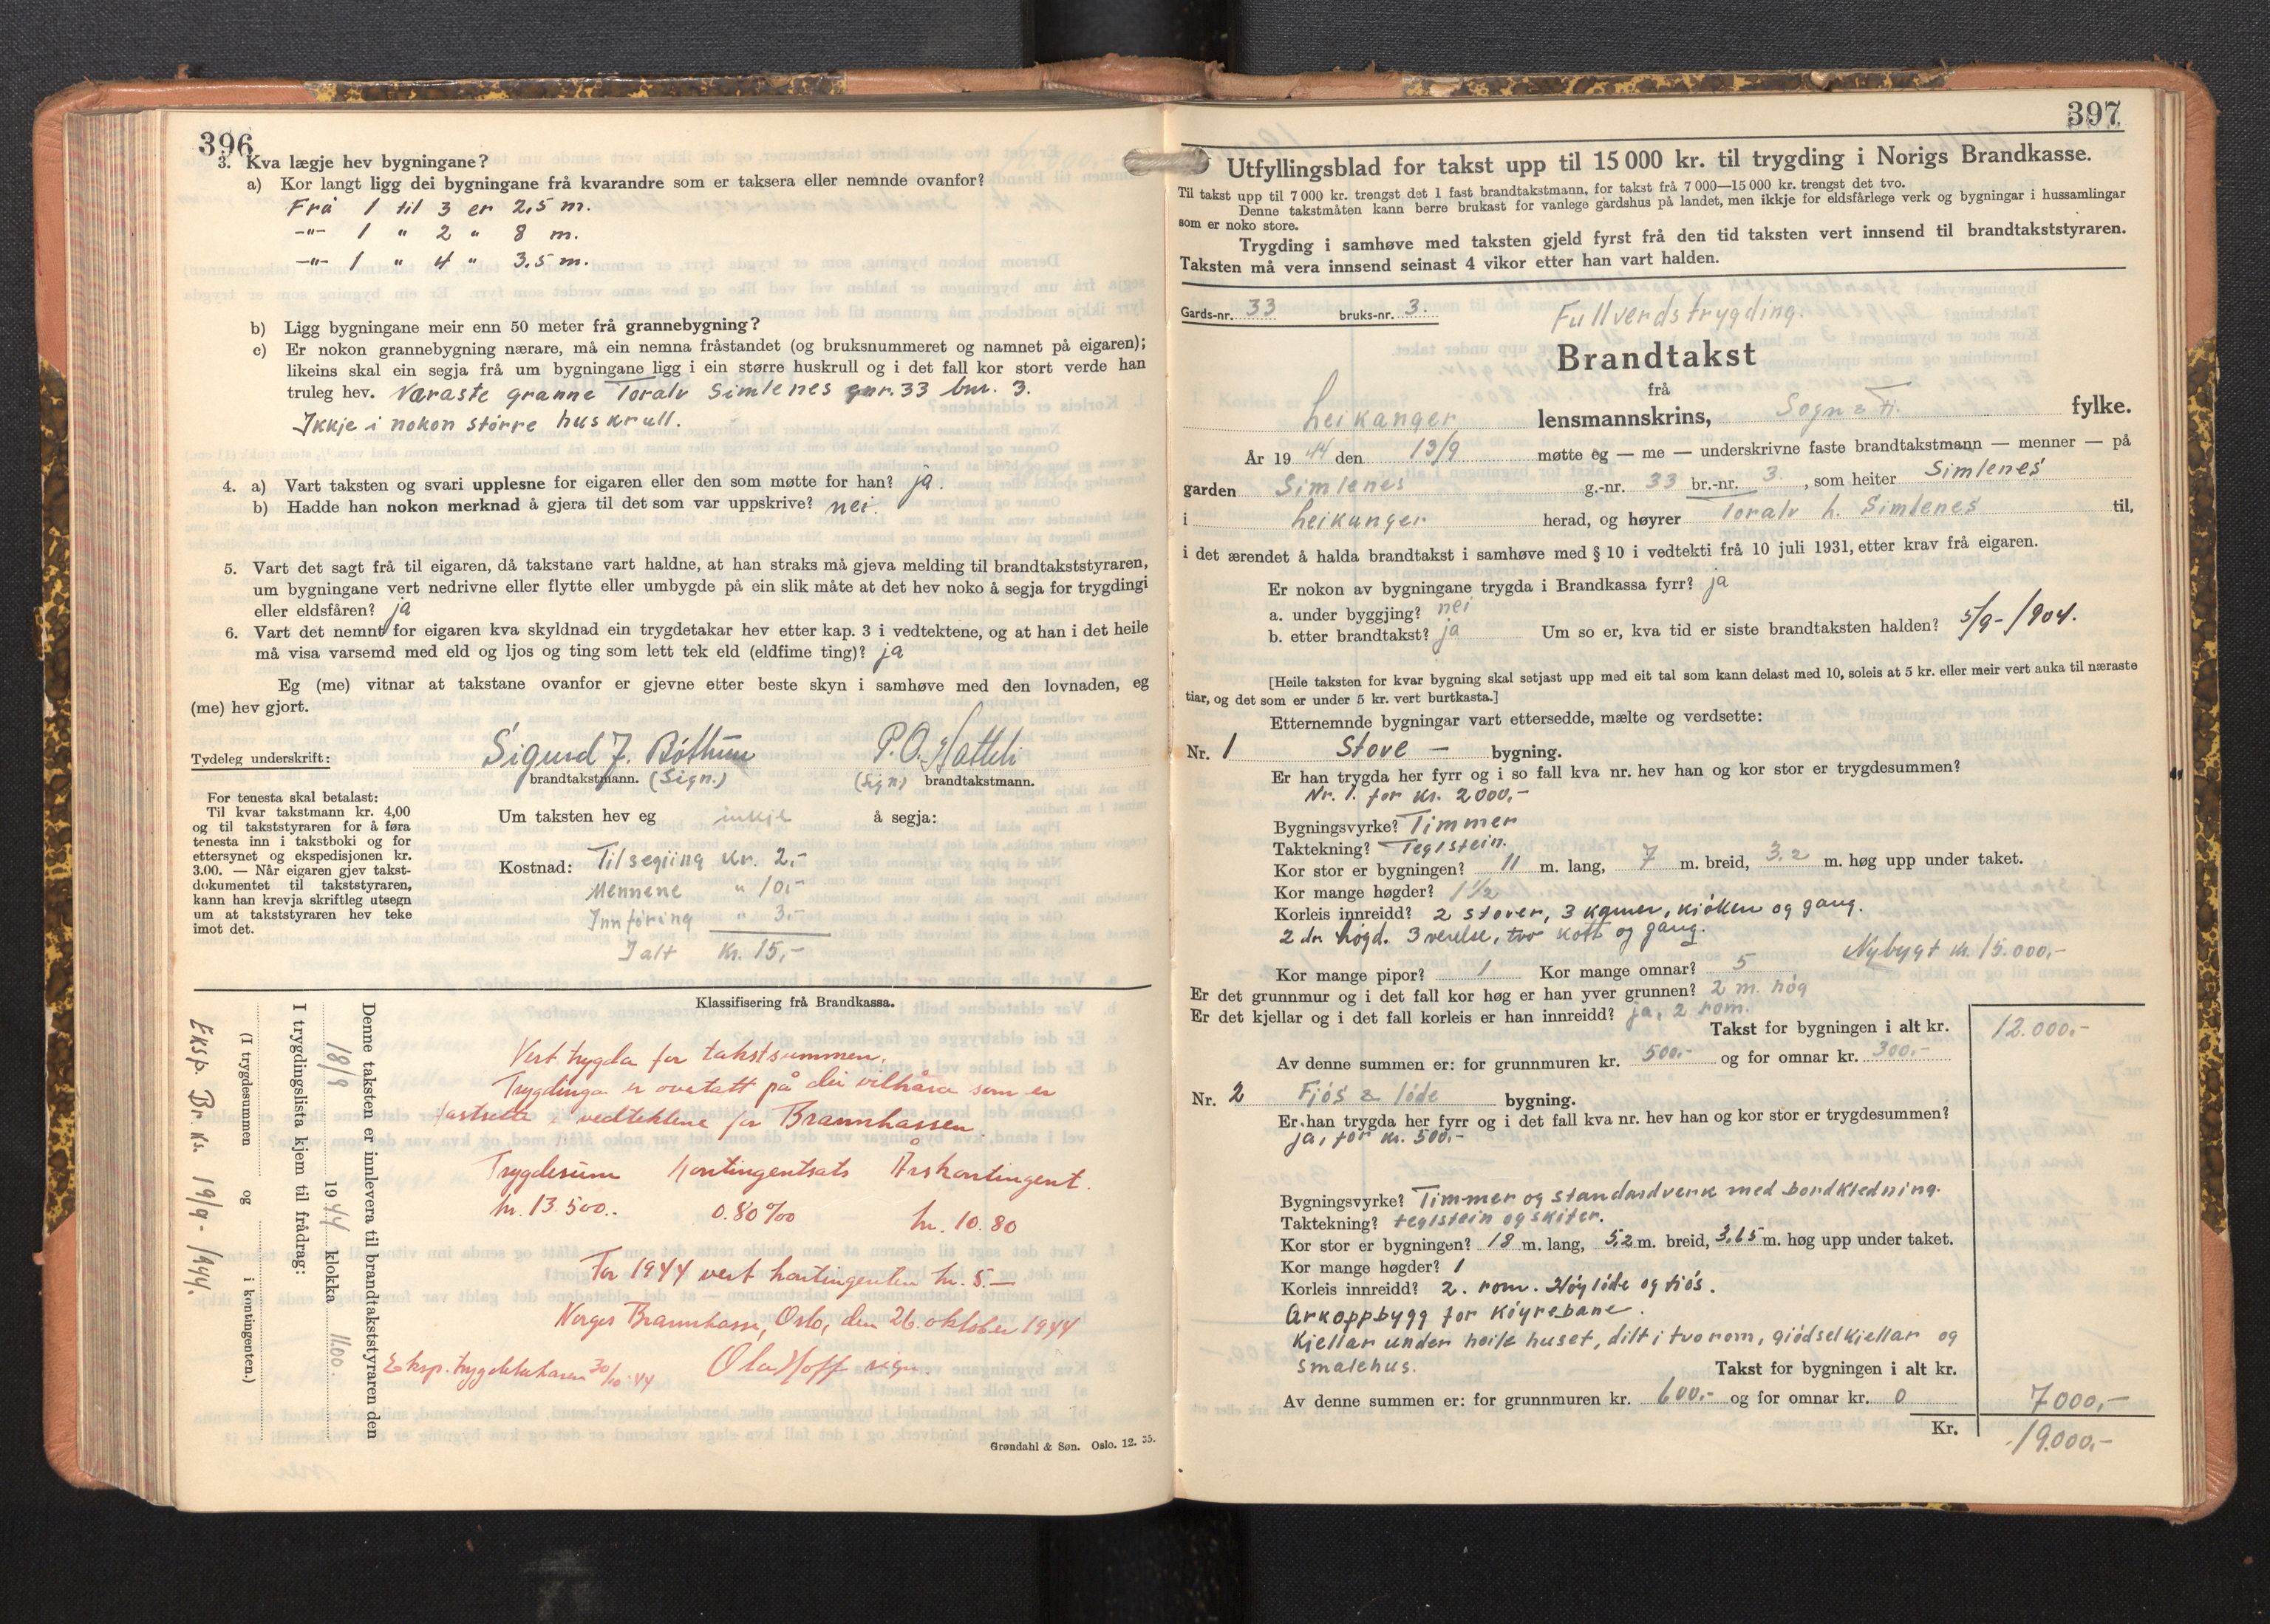 396
3. Kva lægje hev bygningane?
a) Kor langt ligg dei bygningane frå kvarandre som er taksera eller nemnde ovanfor?
Frå 1 til 3 er 2,5 m.
-"- 1 " 2 " 8 m.
-"- 1 " 4 " 3.5 m.
b) Ligg bygningane meir enn 50 meter frå grannebygning?
c) Er nokon grannebygning nærare, må ein nemna fråstandet (og bruksnummeret og namnet på eigaren);
likeins skal ein segja frå um bygningane ligg i ein større huskrull og i det fall kor stort verde han
truleg hev. Næraste granne Toralv Simlenes gnr. 33 bnr. 3.
Ikkje i nokon större huskrull.
4. a) Vart taksten og svari upplesne for eigaren eller den som møtte for han? ja.
b) Hadde han nokon merknad å gjera til det som var uppskrive? nei.
5. Vart det sagt frå til eigaren, då takstane vart haldne, at han straks må gjeva melding til brandtakststyraren,
um bygningane vert nedrivne eller flytte eller umbygde på ein slik måte at det hev noko å segja for trygdingi
eller eldsfåren? ja
6. Vart det nemnt for eigaren kva skyldnad ein trygdetakar hev etter kap. 3 i vedtektene, og at han i det heile
må visa varsemd med eld og ljos og ting som lett tek eld (eldfime ting)? ja
Eg (me) vitnar at takstane ovanfor er gjevne etter beste skyn i samhøve med den lovnaden, eg
(me) hev gjort.
Tydeleg underskrift: Sigurd J. Böthun P. O. Hatteli
brandtakstmann. (Sign.) (Sign) brandtakstmann.
For tenesta skal betalast:
Til kvar takstmann kr. 4,00
og til takststyraren for å føra
tenesta inn i takstboki og for
ettersynet og ekspedisjonen kr.
3.00. — Når eigaren gjev takst-
dokumentet til takststyraren,
kann han krevja skriftleg utsegn
um at takststyraren hev teke
imot det.
Um taksten hev eg inkje å segja:
Kostnad: Tilsegiing kr. 2,-
Mennene " 10,-
Innföring " 3,-
Ialt Kr. 15,-
Klassifisering frå Brandkassa.
Vert trygda for takstsummen.
Trygdinga er overtatt på dei vilkåra som er
fastsette i vedtektene for Brannkassen.
Trygdesum Kontingentsats Årskontingent.
kr. 13.500.- 0.80 ‰ kr. 10.80
For 1944 vert kontingenten kr. 5.—
Norges Brannkasse, Oslo, den 26. oktober 1944
Ola Hoff sign.
Eksp. trygdetakaren 30/10-44
Denne taksten er innlevera til brandtakststyraren den
18/9 1944 klokka 11.00.
I trygdingslista kjem til frådrag:
(I trygdesummen og i kontingenten.)
Eksp. Br. k. 19/9-1944.
Grøndahl & Søn. Oslo. 12. 35.
397
Utfyllingsblad for takst upp til 15 000 kr. til trygding i Norigs Brandkasse.
Til takst upp til 7 000 kr. trengst det 1 fast brandtakstmann, for takst frå 7 000—15 000 kr. trengst det tvo.
Denne takstmåten kann berre brukast for vanlege gardshus på landet, men ikkje for eldsfårlege verk og bygningar i hussamlingar
som er noko store.
Trygding i samhøve med taksten gjeld fyrst frå den tid taksten vert innsend til brandtakststyraren.
Taksten må vera innsend seinast 4 vikor etter han vart halden.
Gards-nr. 33 bruks-nr. 3.
Fullverdstrygding.
Brandtakst
frå
Leikanger lensmannskrins, Sogn & Fj. fylke.
År 1944 den 13/9 møtte eg — me — underskrivne faste brandtakstmann — menner — på
garden Simlenes g.-nr. 33 br.-nr. 3., som heiter Simlenes
i Leikanger herad, og høyrer Toralv L. Simlenes til,
i det ærendet å halda brandtakst i samhøve med § 10 i vedtekti frå 10 juli 1931, etter krav frå eigaren.
Er nokon av bygningane trygda i Brandkassa fyrr? ja
a. under byggjing? nei
b. etter brandtakst? ja Um so er, kva tid er siste brandtaksten halden? 5/9-1904.
[Heile taksten for kvar bygning skal setjast upp med eit tal som kann delast med 10, soleis at 5 kr. eller meir vert auka til næraste
tiar, og det som er under 5 kr. vert burtkasta.]
Etternemnde bygningar vart ettersedde, mælte og verdsette:
Nr. 1 Stove — bygning.
Er han trygda her fyrr og i so fall kva nr. hev han og kor stor er trygdesummen?
Nr. 1. for kr. 2000,-
Bygningsvyrke? Timmer
Taktekning? Teglstein.
Kor stor er bygningen? 11 m. lang, 7 m. breid, 3,2 m. høg upp under taket.
Kor mange høgder? 1 1/2
Korleis innreidd? 2 stover, 3 kamer, kjöken og gang.
2 dr högd. 3 verelse, tvo kott og gang.
Nybygt kr. 15.000,-
Kor mange pipor? 1 Kor mange omnar? 5
Er det grunnmur og i det fall kor høg er han yver grunnen? 2 m. hög
Er det kjellar og i det fall korleis er han innreidd? ja, 2 rom.
Takst for bygningen i alt kr. 12.000,-
Av denne summen er: for grunnmuren kr. 500,- og for omnar kr. 300,-
Nr. 2 Fjös & löde bygning.
Er han trygda her fyrr og i det fall kva nr. hev han og kor stor er trygdesummen?
ja, for kr. 500,-
Bygningsvyrke? Timmer og standardverk med bordkledning.
Taktekning? teglstein og skifer.
Kor stor er bygningen? 18 m. lang, 5,2 m. breid, 3,65 m. høg upp under taket.
Kor mange høgder? 1
Korleis innreidd? 2. rom. Höylöde og fjös.
Arkoppbygg for Köyrebane.
Kjellar under heile huset, dilt i tvo rom, gjödselkjellar og
smalehus. Takst for bygningen i alt kr. 7000,-
Av denne summen er: for grunnmuren kr. 600,- og for omnar kr. 0
Kr. 19.000,-